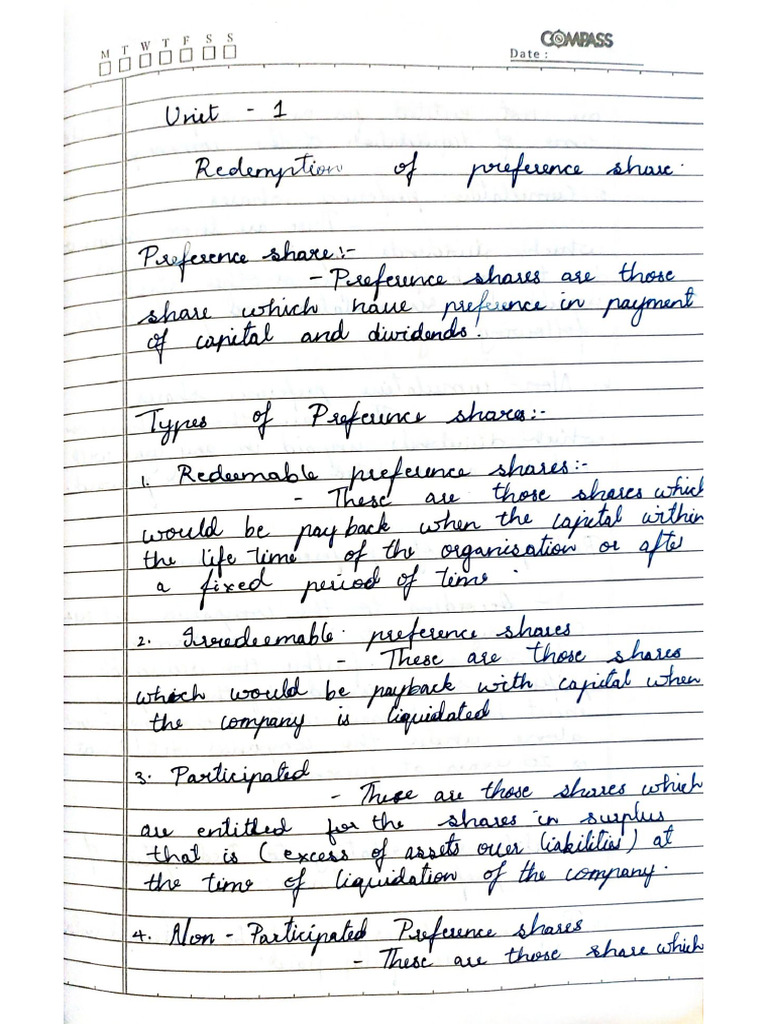 M T W T F S S
COMPASS
Date :
Unit - 1
Redemption of preference share.
Preference share:-
- Preference shares are those
share which have preference in payment
of capital and dividends.
Types of Preference shares:-
1. Redeemable preference shares:-
- These are those shares which
would be pay back when the capital within
the life time of the organisation or after
a fixed period of time.
2. Irredeemable preference shares
- These are those shares
which would be payback with capital when
the company is liquidated
3. Participated
- These are those shares which
are entitled for the shares in surplus
that is (excess of assets over liabilities) at
the time of liquidation of the company.
4. Non - Participated Preference shares
- These are those share which